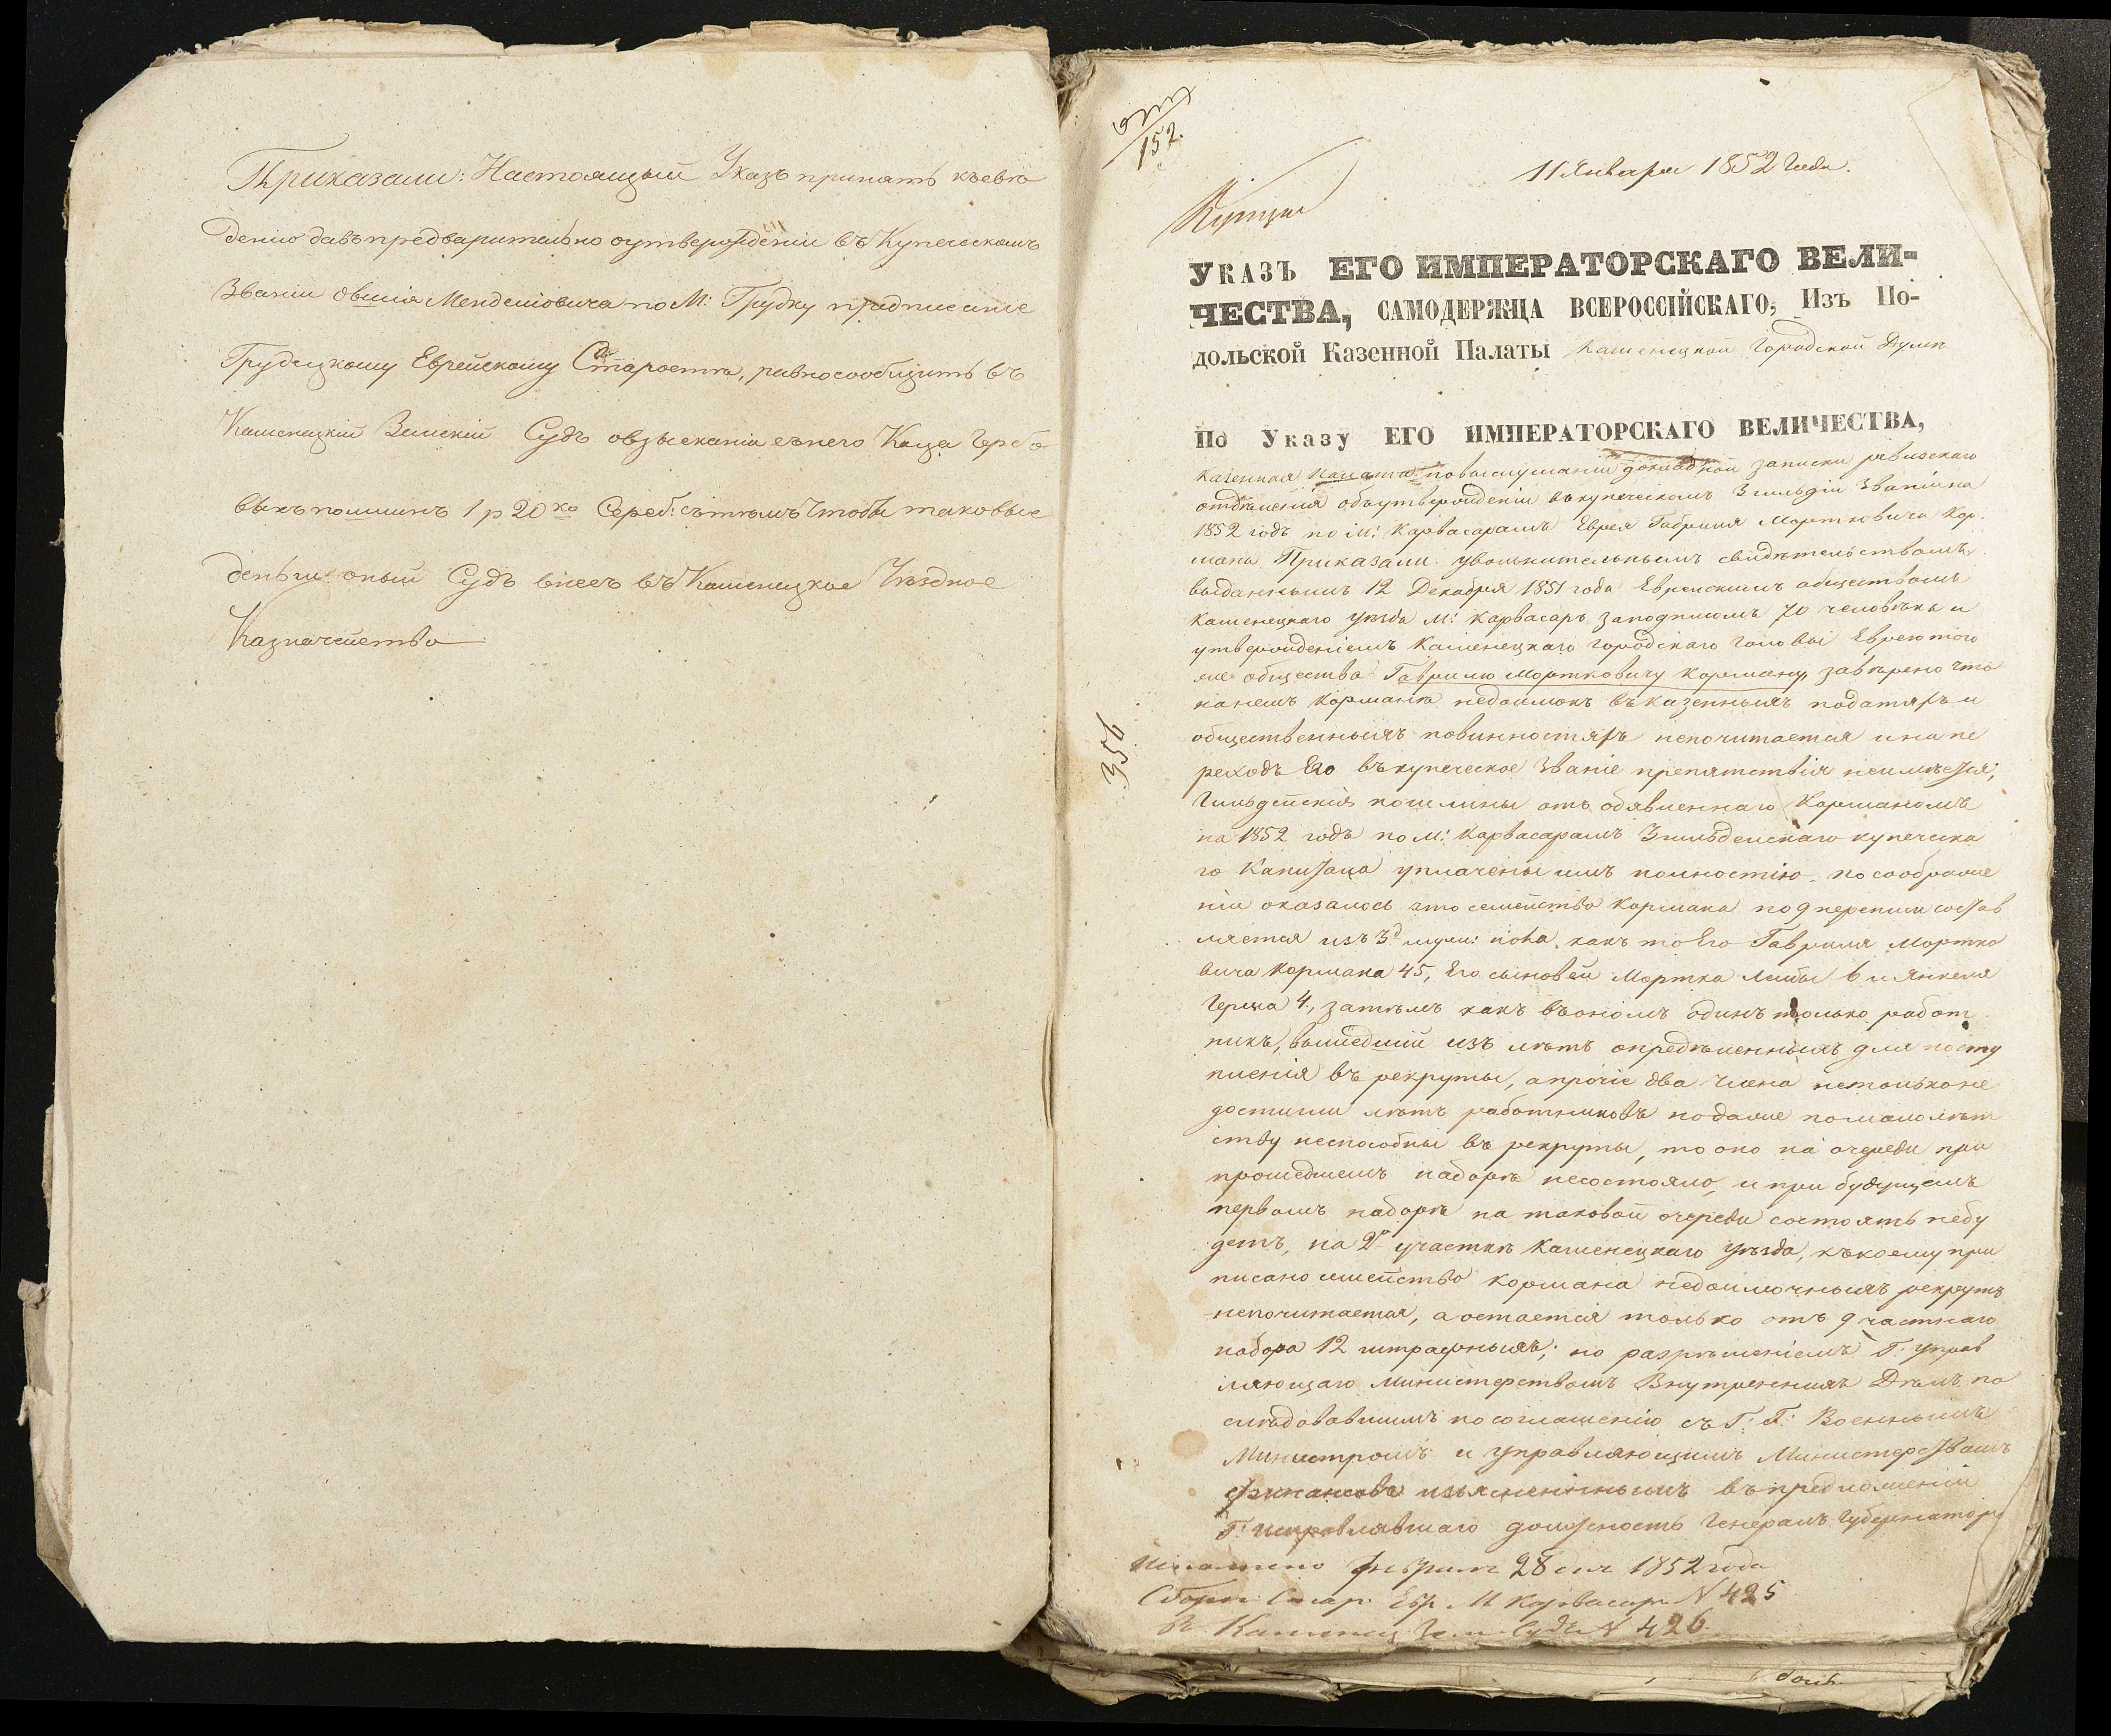 Приказали: Настоящый Указъ принять къ свѣ
денію давъ предварительно о утвержденіи въ Купеческомъ
Званіи Овшія Мендешовича по М: Грудку предписаніе
Грудецкому Еврейскому Старостѣ, равно сообщить въ
Каменецкій Земскій Судъ о взысканіи съ него Каца Гербо
выхъ пошлинъ 1 р 20 ко Сереб: съ тѣмъ чтобы таковые
деньги оный Судъ внесъ въ Каменецкое Уѣздное
Казначейство
152.
11 Января 1852 Года.
Указъ ЕГО ИМПЕРАТОРСКАГО ВЕЛИ-
ЧЕСТВА, САМОДЕРЖЦА ВСЕРОССІЙСКАГО, Изъ По-
дольской Казенной Палаты Каменецкой Городской Думѣ
По Указу ЕГО ИМПЕРАТОРСКАГО ВЕЛИЧЕСТВА,
Казенная Палата по выслушаніи докладной записки ревизскаго
отдѣленія объ утвержденіи въ купеческомъ 3 гильдіи Званіи на
1852 годъ по М: Карвасарамъ Еврея Габриля Мортковича Кор
мана Приказали увольнительнымъ свидѣтельствомъ
выданнымъ 12 Декабря 1851 года Еврейскимъ обществомъ
Каменецкаго уѣзда М: Карвасаръ за подписомъ 70 человѣкъ и
утвержденіемъ Каменецкаго городскаго головы Еврею того
же общества Гаврилю Мортковичу Корману, завѣрено что
на немъ Корманѣ недоимокъ въ казенныхъ податяхъ и
общественныхъ повинностяхъ непочитается и на пе
реходъ Его въ купеческое Званіе препятствія неимѣется;
Гильдейскія пошлины отъ объявленнаго Корманомъ
на 1852 годъ по М: Карвасарамъ 3 гильдейскаго купеческа
го Капитала уплачены имъ полностію. по соображе
ніи оказалось что семейство Кормана по 9 переписи состав
ляется изъ 3 д муж: пола. какъ то Его Гавриля Мортко
вича Кормана 45, Его сыновей Мортка Лейбы 6 и Янкеля
Герша 4, затѣмъ какъ въ ономъ одинъ только работ
никъ, вышедшій изъ лѣтъ опредѣленныхъ для посту
пленія въ рекруты, а прочіе два члена нетолько не
достигли лѣтъ работниковъ но даже по малолѣт
ству неспособны въ рекруты, то оно на очереди при
прошедшемъ наборѣ несостояло, и при будущемъ
первомъ наборѣ на таковой очереди состоять небу
детъ, на 2 участкѣ Каменецкаго уѣзда, къ коему при
писано семейство Кормана недоимочныхъ рекрутъ
непочитается, а остается только отъ 9 частнаго
набора 12 штрафныхъ; но разрѣшеніемъ Г. Управ
ляющаго Министерствомъ Внутреннихъ Дѣлъ, по
слѣдовавшимъ по соглашенію съ Г: Г: Военнымъ
Министромъ и Управляющимъ Министерствомъ
Финансовъ изъясненнымъ въ предложеніи
Г. исправлявшаго должность Генералъ Губернатора
356
Исполнено Февраля 28 дня 1852 года
Сборщ: Стар: Евр. М Карвасаръ N 425
въ Каменец Зем Судъ N 426.